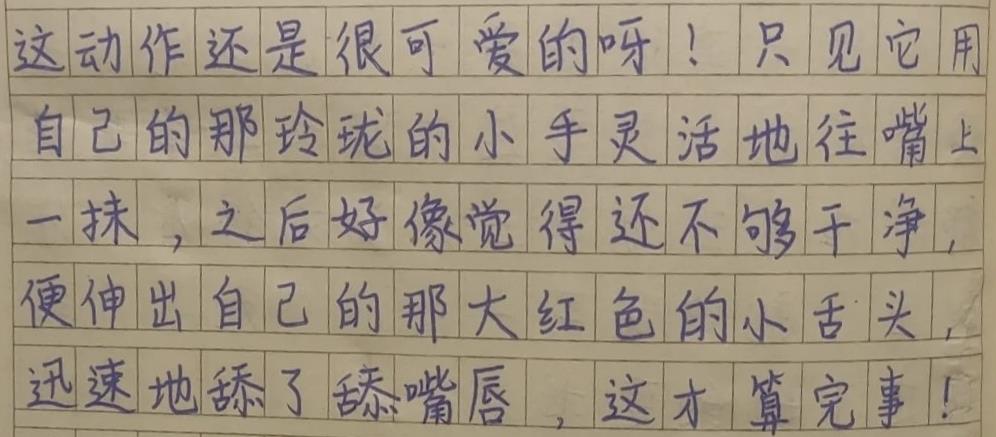 这动作还是很可爱的呀！只见它用
自己的那玲珑的小手灵活地往嘴上
一抹，之后好像觉得还不够干净，
便伸出自己的那大红色的小舌头，
迅速地舔了舔嘴唇，这才算完事！